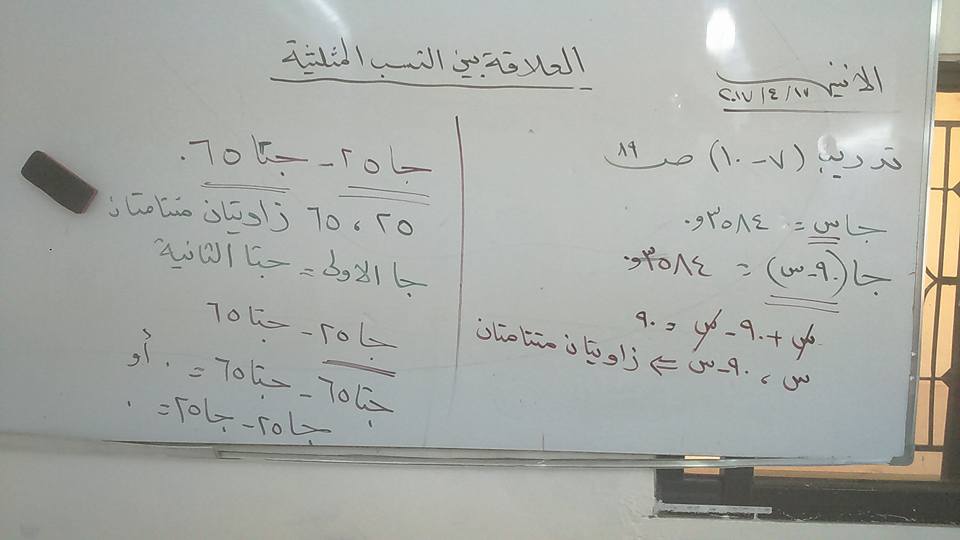 العلاقة بين النسب المثلثية
الاثنين
٢٠١٧/٤/١٧
تدريب (٧-١٠) ص ٨٩
جاس = ٣٥٨٤و٠
جا(٩٠-س) = ٣٥٨٤و٠
س + ٩٠ - س = ٩٠
س ، ٩٠-س ⇐ زاويتان متتامتان
جا٢٥ - جتا٦٥
٢٥ ، ٦٥ زاويتان متتامتان
جا الاولى = جتا الثانية
جا٢٥ - جتا٦٥
جتا٦٥ - جتا٦٥ = ٠ أو
جا٢٥ - جا٢٥ = ٠